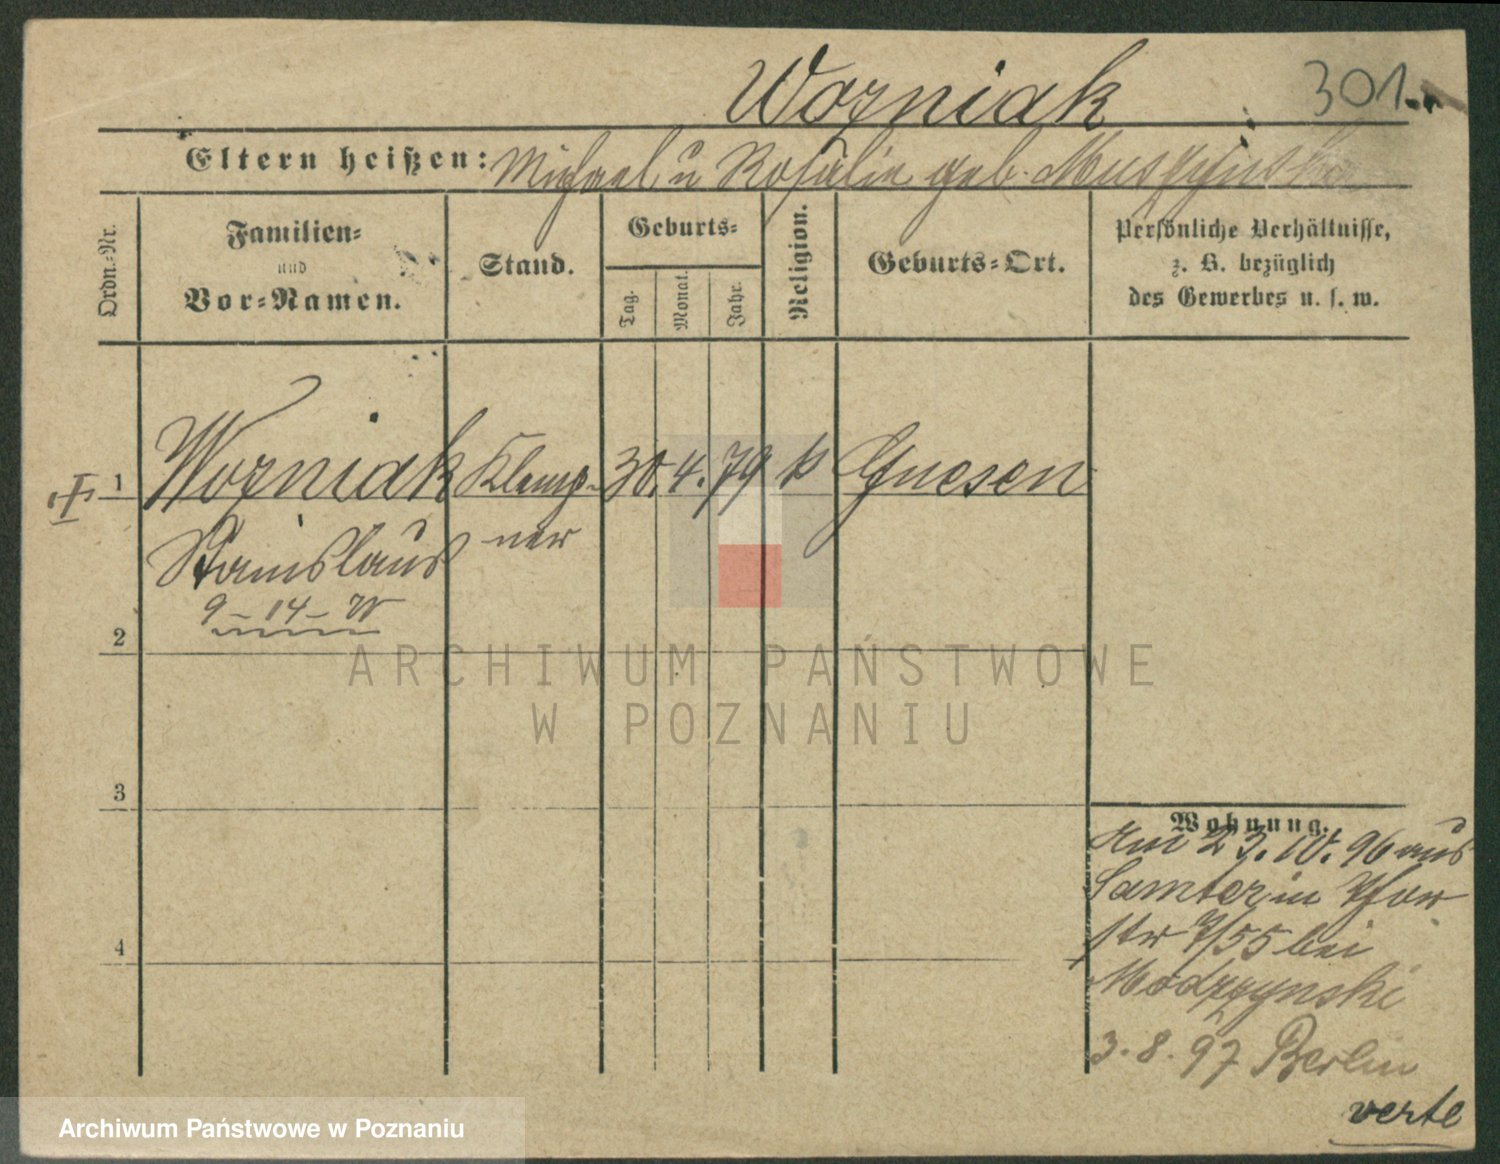 301.
Wozniak
Eltern heißen: Michael u Rosalie geb. Muszynska
Ordn.-Nr.
Familien-
und
Vor-Namen.
Stand.
Geburts-
Tag.
Monat.
Jahr.
Religion.
Geburts-Ort.
Persönliche Verhältnisse,
z. B. bezüglich
des Gewerbes u. s. w.
I 1 Wozniak Klemp- 30. 4. 79 k Gnesen
Stanislaus ner
9-14-
2
3
4
Wohnung.
Am 23. 10. 96 aus
Samter in Thor
str 7/55 bei
Modrzynski
3. 8. 97 Berlin
verte
ARCHIWUM PAŃSTWOWE
W POZNANIU
Archiwum Państwowe w Poznaniu